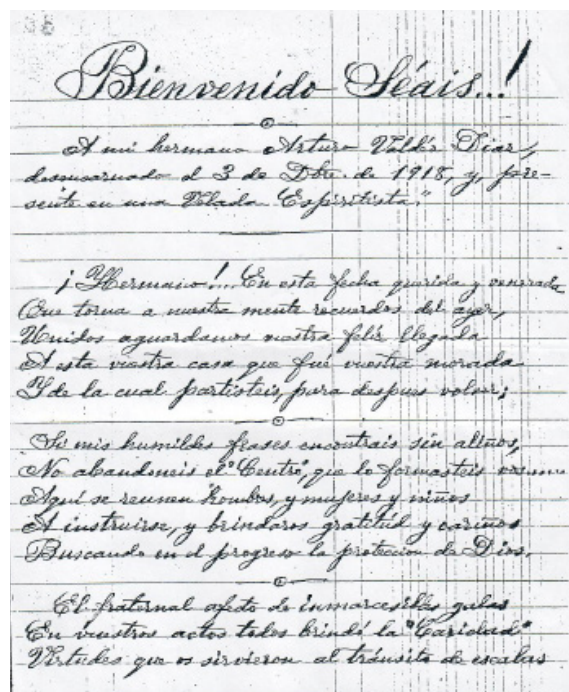 Bienvenido Seáis...!
A mi hermano Arturo Valdés Diaz,
desencarnado el 3 de Dbre. de 1918, y, pre-
sente en una Velada Espiritista."
¡Hermano!... En esta fecha querida y venerada
Que torna a nuestra mente recuerdos del ayer,
Unidos aguardamos vuestra feliz llegada
A esta vuestra casa que fué vuestra morada
Y de la cual partisteis, para despues volver;
Si mis humildes frases encontrais sin aliños,
No abandoneis el "Centro", que lo formasteis
Aqui se reunen hombres, y mujeres y niños
A instruirse, y brindaros gratitúd y cariños
Buscando en el progreso la proteccion de Dios.
El fraternal afecto de inmarcesibles galas
En vuestros actos todos brindó la "Caridad"
Virtudes que os sirvieron al tránsito de escalas